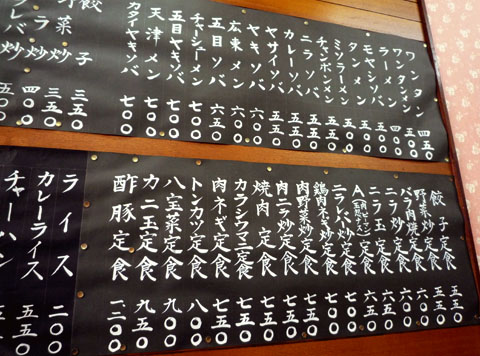 ワンタン 四五〇
ワンタンメン
ラーメン
モヤシソバ
タンメン
ミソラーメン 五五〇
チャンポンメン 五五〇
ニラソバ 五五〇
カレーソバ 五五〇
ヤサイソバ 五五〇
ヤキソバ 六〇〇
広東メン 六〇〇
五目ソバ 六五〇
チャーシューメン 七〇〇
五目ヤキソバ 七〇〇
天津メン 七〇〇
カタイヤキソバ 七〇〇
餃子 三五〇
野菜炒 四〇〇
ニラ炒
レバ炒 五〇
餃子定食 五五〇
野菜炒定食 五五〇
バラ肉焼定食 六〇〇
ニラ炒定食 六〇〇
ニラ玉定食 六五〇
A定食 六五〇
ニラレバ炒定食 七〇〇
鶏肉ネギ炒定食 七〇〇
肉野菜炒定食 七五〇
肉ニラ炒定食 七五〇
焼肉定食 七五〇
定食 七五〇
肉ネギ定食 七五〇
トンカツ定食 八〇〇
八宝菜定食 九〇〇
カニ玉定食 九五〇
酢豚定食 一二〇〇
ライス 二〇〇
カレーライス 五五〇
チャーハン 五五